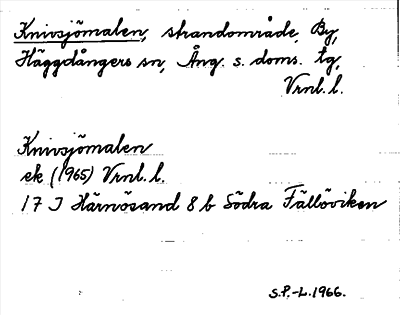 Knivsjömalen, strandområde, By,
Häggdångers sn, Ång. s. doms. tg,
Vrnl. l.
Knivsjömalen
ek (1965) Vrnl. l.
17 J Härnösand 8 b Södra Fällöviken
S.P.-L. 1966.